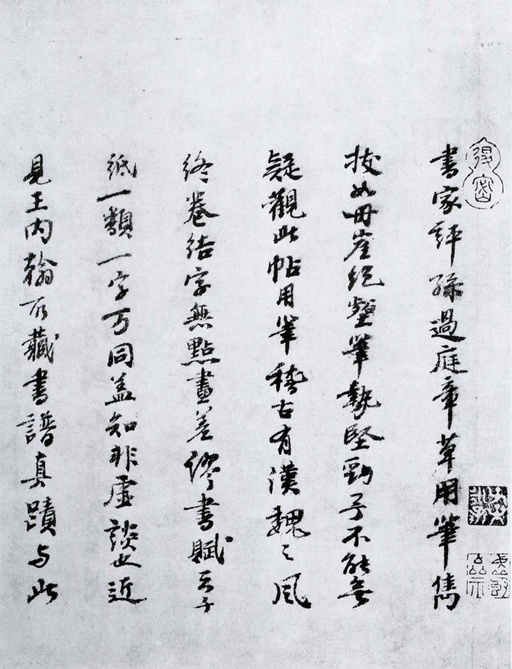 書家評孫過庭章草用筆雋
拔如丹崖絕壑筆執堅勁予不能無
疑觀此帖用筆稽古有漢魏之風
終卷結字無點畫差繆書賦云千
紙一類一字万同蓋知非虛談也近
見王內翰所藏書譜真蹟与此